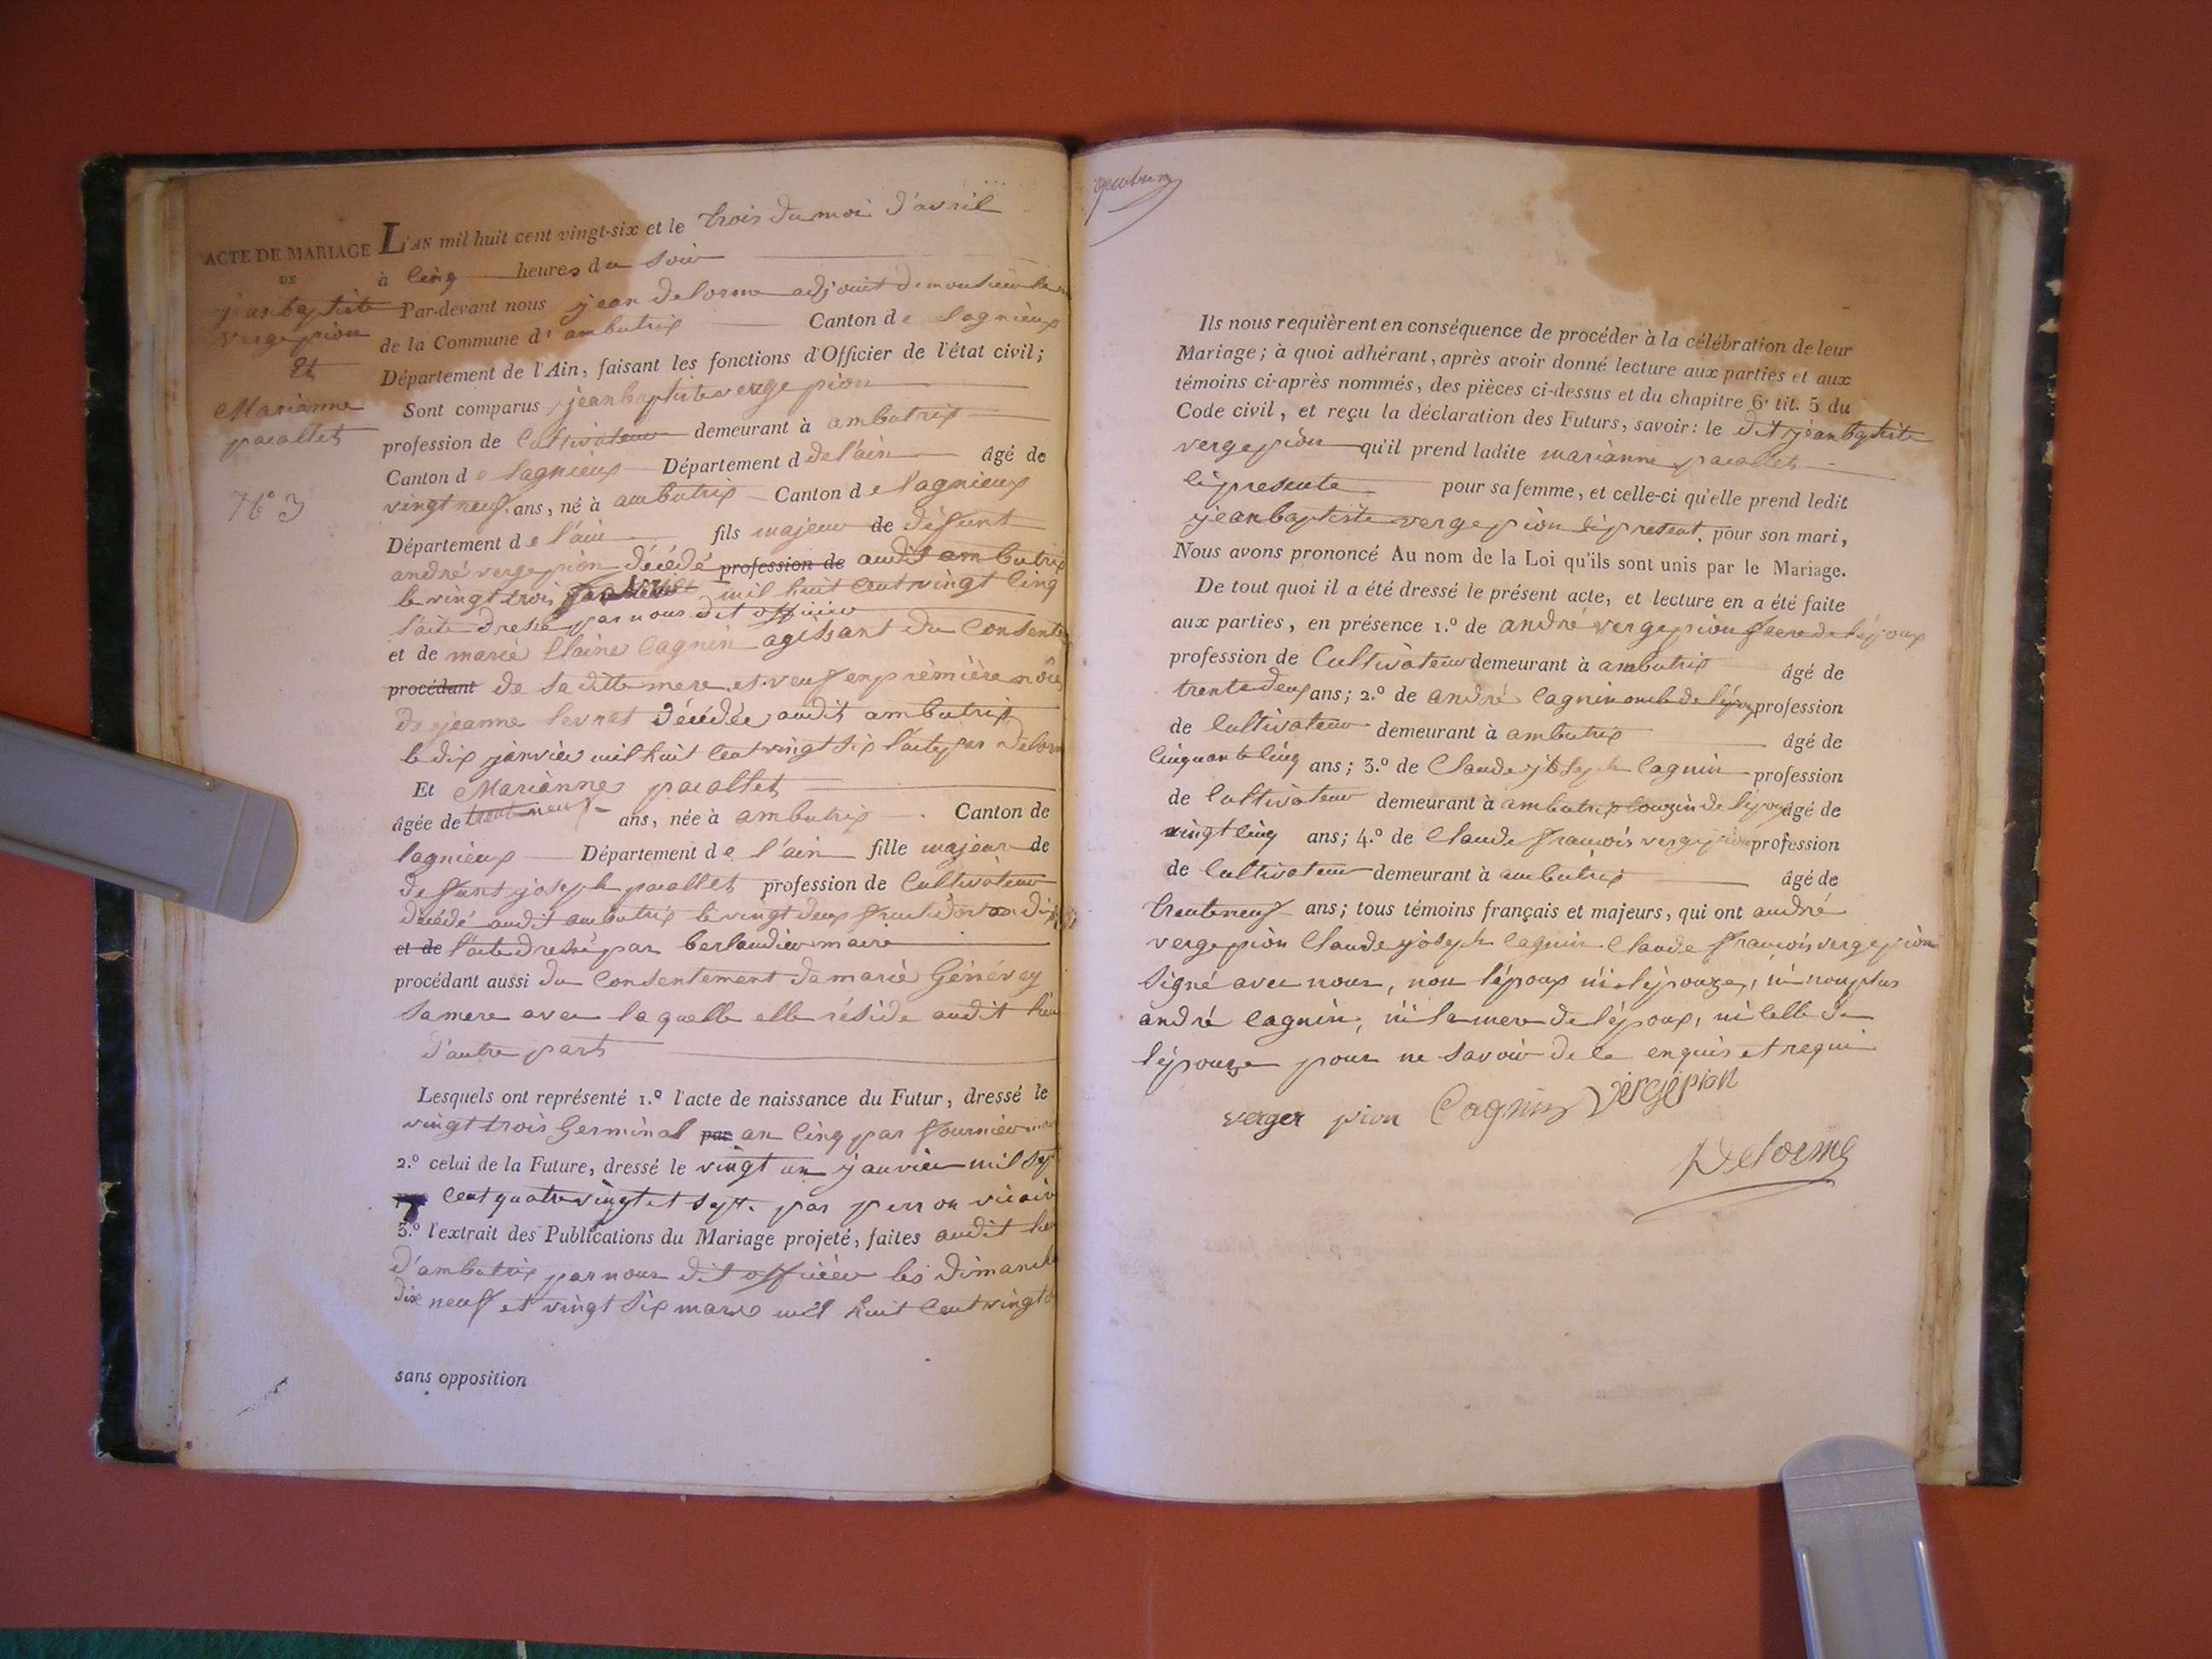 ACTE DE MARIAGE
DE
jeanbaptiste
vergepion
Et
Marianne
pacallet
N.° 3
L'AN mil huit cent vingt-six et le trois du moi d'avril
à cinq heures du soir
Par-devant nous jean delorme adjouit de monsieur le
de la Commune d'ambutrix Canton de lagnieux
Département de l'Ain, faisant les fonctions d'Officier de l'état civil;
Sont comparus jeanbaptiste vergepion
profession de Cultivateur demeurant à ambutrix
Canton de lagnieux Département d de l'ain âgé de
vingt neuf ans, né à ambutrix Canton de lagnieux
Département de l'ain fils majeur de défunt
andré vergepion décédé profession de audit ambutrix
le vingt trois mil huit cent vingt cinq
l'acte dressé par nous dit officier
et de marie Claine Cagnin agissant du Consente
procédant de sa ditte mere et veuf en première nôce
de jeanne levret décédée audit ambutrix
le dix janvier mil huit cent vingt six l'acte par Delorm
Et Marianne pacallet
âgée de trente neuf ans, née à ambutrix Canton de
lagnieux Département de l'ain fille majeur de
defunt joseph pacallet profession de Cultivateur
décédé audit ambutrix le vingt deux fructidor an dix
et de l'acte dressé par berlandier maire
procédant aussi du Consentement de marie Génévay
sa mere avec laquelle elle réside audit lieu
d'autre part
Lesquels ont représenté 1.° l'acte de naissance du Futur, dressé le
vingt trois Germinal par an cinq par fournier
2.° celui de la Future, dressé le vingt un janvier mil sept
cent quatre vingt et sept. par perron vicair
3.° l'extrait des Publications du Mariage projeté, faites audit lieu
d'ambutrix par nous dit officier les dimanche
dix neuf et vingt six mars mil huit cent vingt s
sans opposition
Ils nous requièrent en conséquence de procéder à la célébration de leur
Mariage; à quoi adhérant, après avoir donné lecture aux parties et aux
témoins ci-après nommés, des pièces ci-dessus et du chapitre 6. tit. 5 du
Code civil, et reçu la déclaration des Futurs, savoir: le dit jeanbaptiste
vergepion qu'il prend ladite marianne pacallet
ci presente pour sa femme, et celle-ci qu'elle prend ledit
jeanbaptiste vergepion ci present. pour son mari,
Nous avons prononcé Au nom de la Loi qu'ils sont unis par le Mariage.
De tout quoi il a été dressé le présent acte, et lecture en a été faite
aux parties, en présence 1.° de andré vergepion frere de l'époux
profession de Cultivateur demeurant à ambutrix âgé de
trente deux ans; 2.° de andré Cagnin oncle de l'époux profession
de Cultivateur demeurant à ambutrix âgé de
cinquante cinq ans; 3.° de Claude joseph Cagnin profession
de Cultivateur demeurant à ambutrix couzin de l'époux âgé de
vingt cinq ans; 4.° de Claude françois vergepion profession
de Cultivateur demeurant à ambutrix âgé de
trente neuf ans; tous témoins français et majeurs, qui ont andré
vergepion Claude joseph Cagnin Claude françois vergepion
signé avec nous, non l'époux ni l'épouze, ni non plus
andré Cagnin, ni la mere de l'époux, ni celle de
l'épouze pour ne savoir de ce enquis et requi
verger pion Cagnin vergepion
Delorme